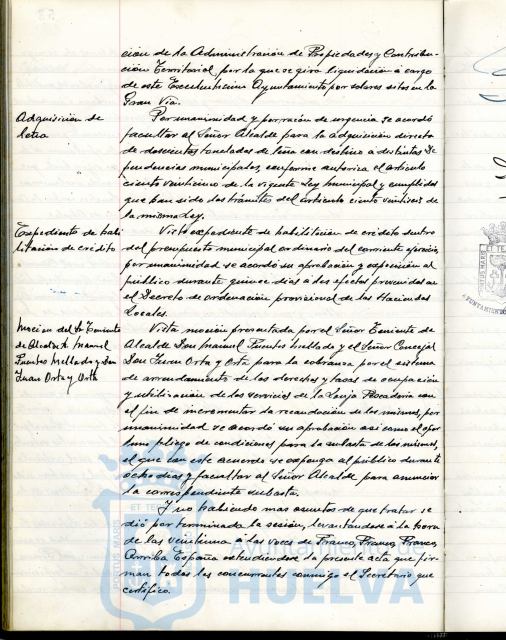 ción de la Administración de Propiedades y Contribu-
ción Territorial por la que se gira liquidación a cargo
de este Excelentísimo Ayuntamiento por solares sitos en la
Gran Vía.
Adquisición de
leña
Por unanimidad y por razón de urgencia se acordó
facultar al Señor Alcalde para la adquisición directa
de doscientas toneladas de leña con destino a distintas De
pendencias municipales, conforme autoriza el artículo
ciento veinticinco de la vigente Ley Municipal y cumplidos
que han sido los trámites del artículo ciento veintiseis de
la misma Ley.
Expediente de habi
litación de crédito
Visto expediente de habilitación de crédito dentro
del presupuesto municipal ordinario del corriente ejercicio,
por unanimidad se acordó su aprobación y exposición al
público durante quince días a los efectos prevenidos en
el Decreto de ordenación provisional de las Haciendas
Locales.
Moción del Sr Teniente
de Alcalde D. Manuel
Fuentes Mellado y Don
Juan Orta y Orta
Vista moción presentada por el Señor Teniente de
Alcalde Don Manuel Fuentes Mellado y el Señor Concejal
Don Juan Orta y Orta para la cobranza por el sistema
de arrendamiento de los derechos y tasas de ocupación
y utilización de los servicios de la Lonja Pescadería con
el fin de incrementar la recaudación de los mismos, por
unanimidad se acordó su aprobación así como el opor
tuno pliego de condiciones para la subasta de los mismos,
el que con este acuerdo se exponga al público durante
ocho días y facultar al Señor Alcalde para anunciar
la correspondiente subasta.
Y no habiendo mas asuntos de que tratar se
dió por terminada la sesión, levantándose a la hora
de las veintiuna a las voces de Franco, Franco, Franco,
Arriba España extendiéndose la presente acta que fir-
man todos los concurrentes conmigo el Secretario que
certifico.
HUELVA